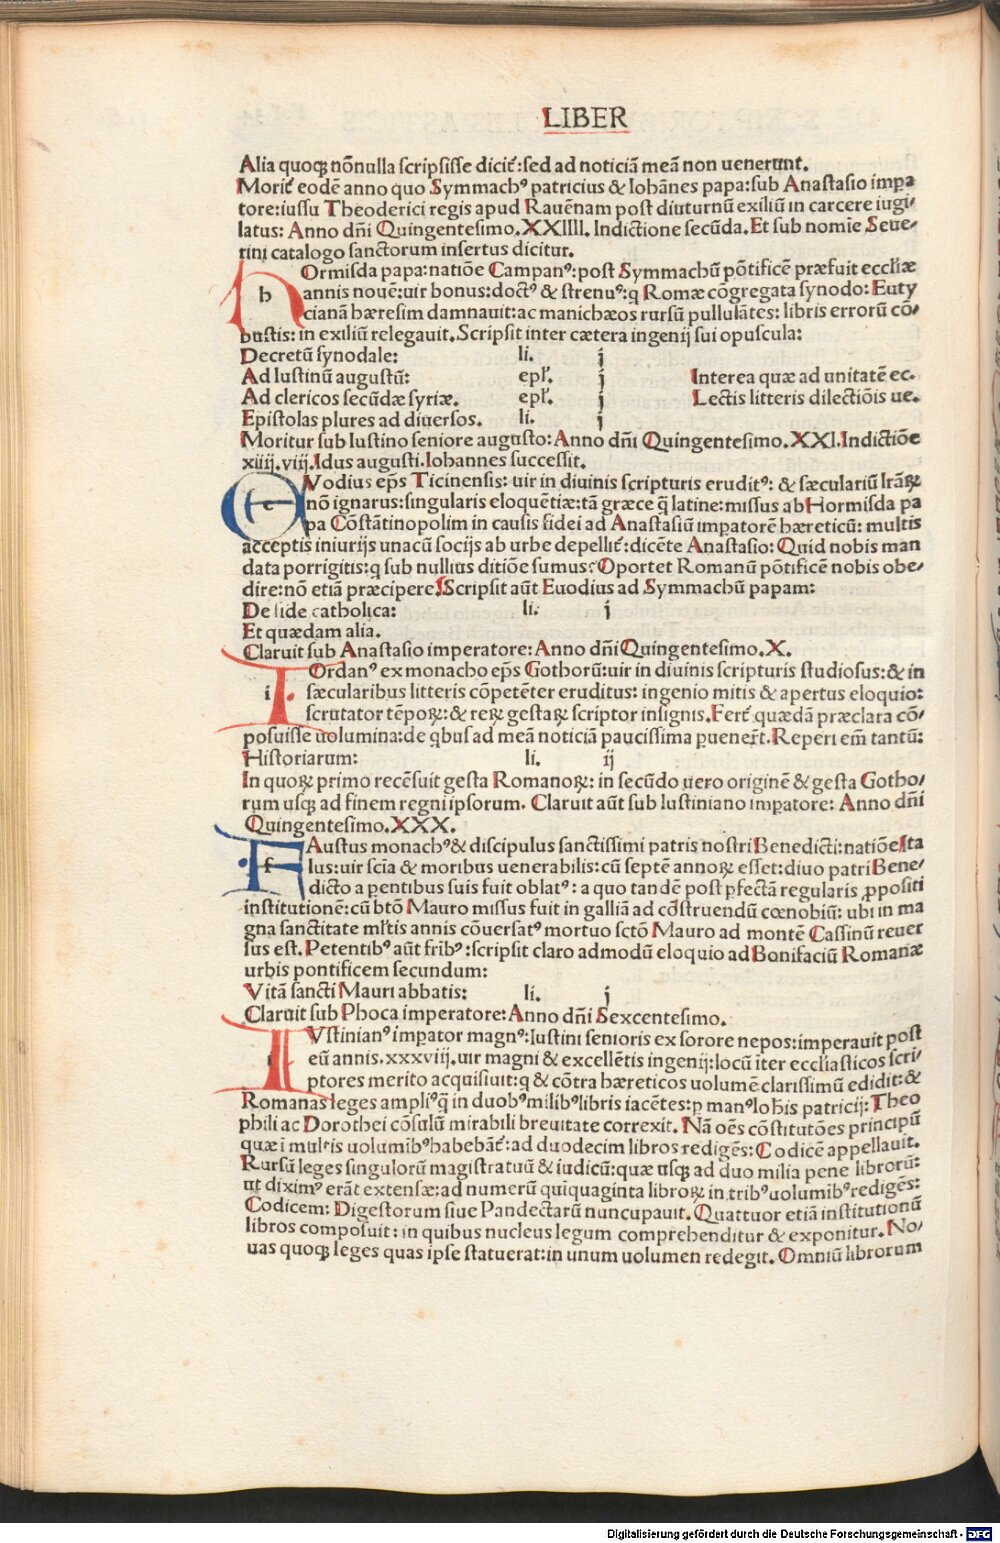 LIBER
Alia quoqꝫ nõnulla scripsisse dicit᷑: sed ad noticiã meã non uenerunt.
Morit᷑ eodẽ anno quo Symmachꝰ patricius & Iohãnes papa: sub Anastasio impa
tore: iussu Theoderici regis apud Rauẽnam post diuturnũ exiliũ in carcere iugi/
latus: Anno dñi Quingentesimo.XXIIII. Indictione secũda. Et sub nomie Seue/
rini catalogo sanctorum insertus dicitur.
hOrmisda papa: natiõe Campanꝰ: post Symmachũ põtificẽ præfuit eccliæ
annis nouẽ: uir bonus: doctꝰ & strenuꝰ: q Romæ cõgregata synodo: Euty
cianã hæresim damnauit: ac manichæos rursũ pullulãtes: libris errorũ cõ/
bustis: in exiliũ relegauit. Scripsit inter cætera ingenij sui opuscula:
Decretũ synodale: li. j
Ad Iustinũ augustũ: epl̃. j Interea quæ ad unitatẽ ec.
Ad clericos secũdæ syriæ. epl̃. j Lectis litteris dilectiõis ue.
Epistolas plures ad diuersos. li. j
Moritur sub Iustino seniore augusto: Anno dñi Quingentesimo.XXI. Indictiõe
xiiij. viij. Idus augusti. Iohannes successit.
eVodius ep̃s Ticinensis: uir in diuinis scripturis eruditꝰ: & sæculariũ lr̃aꝝ
nõ ignarus: singularis eloquẽtiæ: tã græce q̃ latine: missus ab Hormisda pa
pa Cõstãtinopolim in causis fidei ad Anastasiũ impatorẽ hæreticũ: multis
acceptis iniurijs unacũ socijs ab urbe depellit᷑: dicẽte Anastasio: Quid nobis man
data porrigitis: q sub nullius ditiõe sumus? Oportet Romanũ põtificẽ nobis obe/
dire: nõ etiã præcipere. Scripsit aũt Euodius ad Symmachũ papam:
De fide catholica: li. j
Et quædam alia.
Claruit sub Anastasio imperatore: Anno dñi Quingentesimo.X.
iOrdanꝰ ex monacho ep̃s Gothorũ: uir in diuinis scripturis studiosus: & in
sæcularibus litteris cõpetẽter eruditus: ingenio mitis & apertus eloquio:
scrutator tẽpoꝝ: & reꝝ gestaꝝ scriptor insignis. Fert᷑ quædã præclara cõ/
posuisse uolumina: de qbus ad meã noticiã paucissima puener̃t. Reperi em̃ tantũ:
Historiarum: li. ij
In quoꝝ primo recẽsuit gesta Romanoꝝ: in secũdo uero originẽ & gesta Gotho/
rum usqꝫ ad finem regni ipsorum. Claruit aũt sub Iustiniano impatore: Anno dñi
Quingentesimo.XXX.
fAustus monachꝰ & discipulus sanctissimi patris nostri Benedicti: natiõe Ita
lus: uir scĩa & moribus uenerabilis: cũ septẽ annoꝝ esset: diuo patri Bene/
dicto a pentibus suis fuit oblatꝰ: a quo tandẽ post pfectã regularis ꝓpositi
institutionẽ: cũ btõ Mauro missus fuit in galliã ad cõstruendũ cœnobiũ: ubi in ma
gna sanctitate ml̃tis annis cõuersatꝰ mortuo sctõ Mauro ad montẽ Cassinũ reuer
sus est. Petentibꝰ aũt fribꝰ: scripsit claro admodũ eloquio ad Bonifaciũ Romanæ
urbis pontificem secundum:
Vitã sancti Mauri abbatis: li. j
Claruit sub Phoca imperatore: Anno dñi Sexcentesimo.
iVstinianꝰ impator magnꝰ: Iustini senioris ex sorore nepos: imperauit post
eũ annis.xxxviij. uir magni & excellẽtis ingenij: locũ iter eccliasticos scri/
ptores merito acquisiuit: q & cõtra hæreticos uolumẽ clarissimũ edidit: &
Romanas leges ampliꝰ q̃ in duobꝰ milibꝰ libris iacẽtes: p manꝰ Iohis patricij: Theo
phili ac Dorothei cõsulũ mirabili breuitate correxit. Nã oẽs cõstitutões principũ
quæ ĩ multis uolumibꝰ habebãt᷑: ad duodecim libros redigẽs: Codicẽ appellauit.
Rursũ leges singulorũ magistratuũ & iudicũ: quæ usqꝫ ad duo milia pene librorũ:
ut diximꝰ erãt extensæ: ad numerũ quĩquaginta libroꝝ in tribꝰ uolumibꝰ redigẽs:
Codicem: Digestorum siue Pandectarũ nuncupauit. Quattuor etiã institutionũ
libros composuit: in quibus nucleus legum comprehenditur & exponitur. No/
uas quoqꝫ leges quas ipse statuerat: in unum uolumen redegit. Omniũ librorum
Digitalisierung gefördert durch die Deutsche Forschungsgemeinschaft - DFG